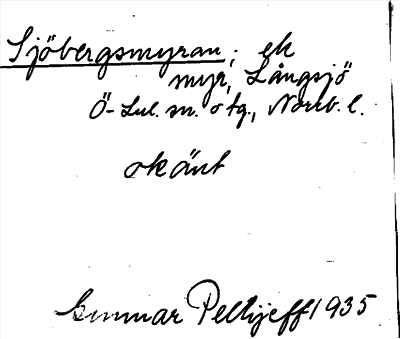 Sjöbergsmyran; ek
myr, Långsjö
Ö-Lul. sn. o tg., Norrb. l.
okänt
Gunnar Pellijeff 1935